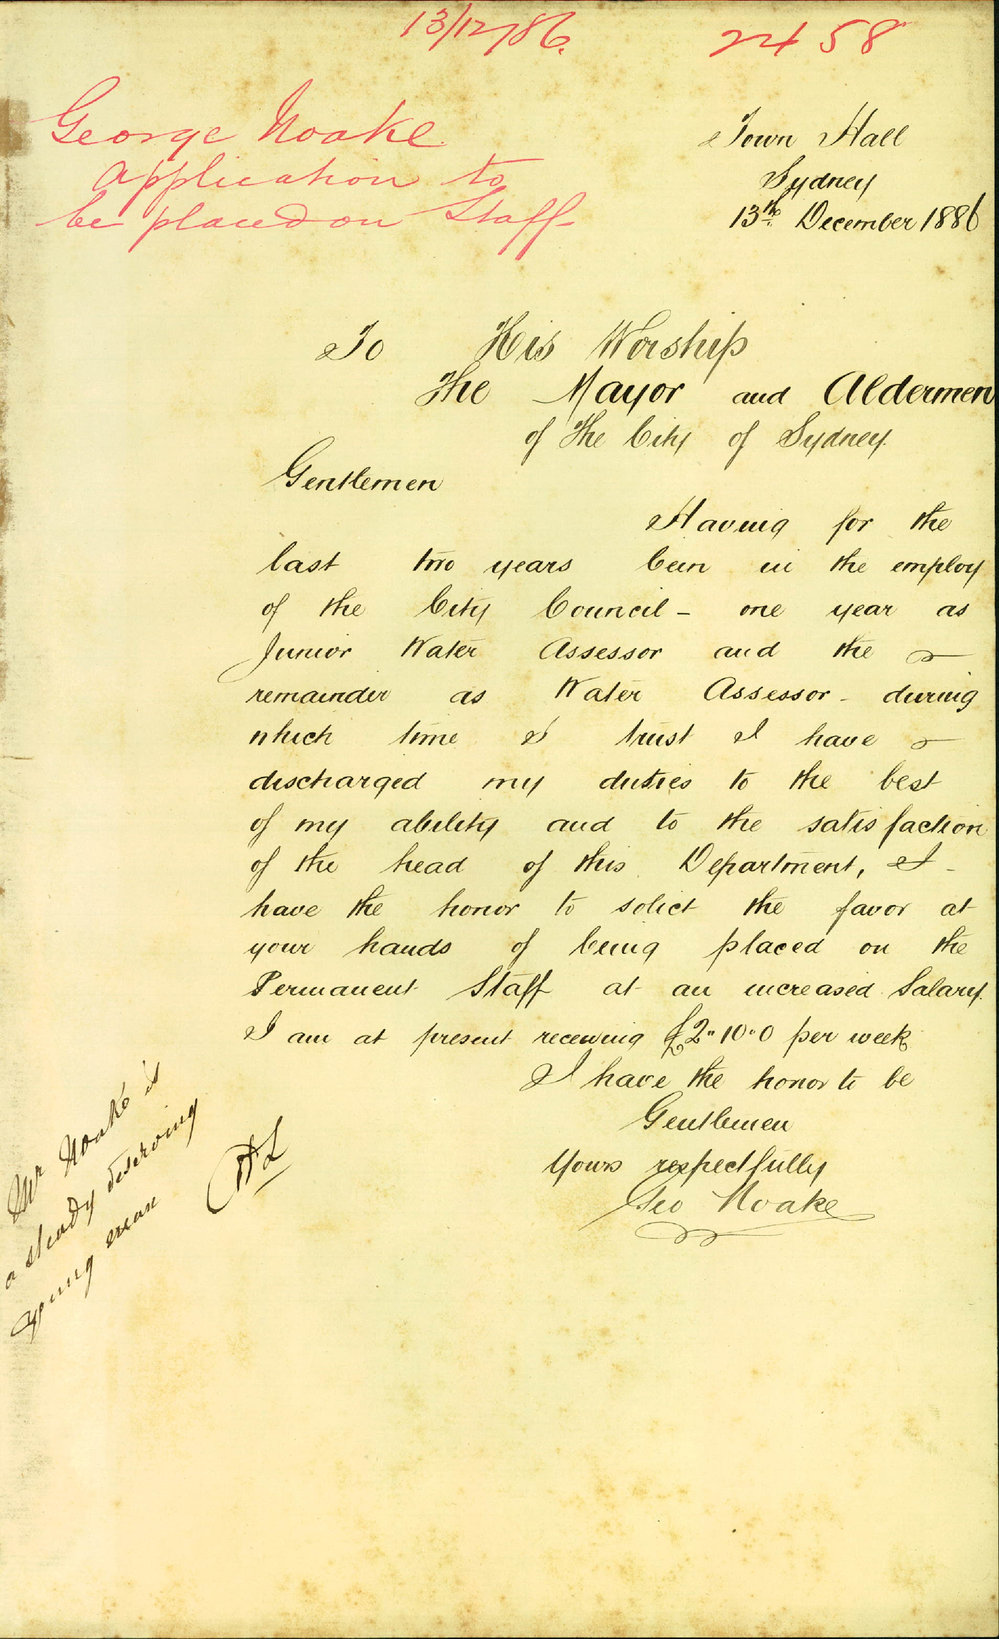 13/12/86.
2458
George Noake
Application to
be placed on Staff
Town Hall
Sydney
13th December 1886
To His Worship
The Mayor and Aldermen
of The City of Sydney.
Gentlemen
Having for the
last two years been in the employ
of the City Council - one year as
Junior Water Assessor and the
remainder as Water Assessor - during
which time I trust I have
discharged my duties to the best
of my ability and to the satisfaction
of the head of this Department, I -
have the honor to solict the favor at
your hands of being placed on the
Permanent Staff at an increased Salary.
I am at present receiving £2"10"0 per week
I have the honor to be
Gentlemen
Yours respectfully
Geo Noake
Mr Noake is
a steady deserving
young man